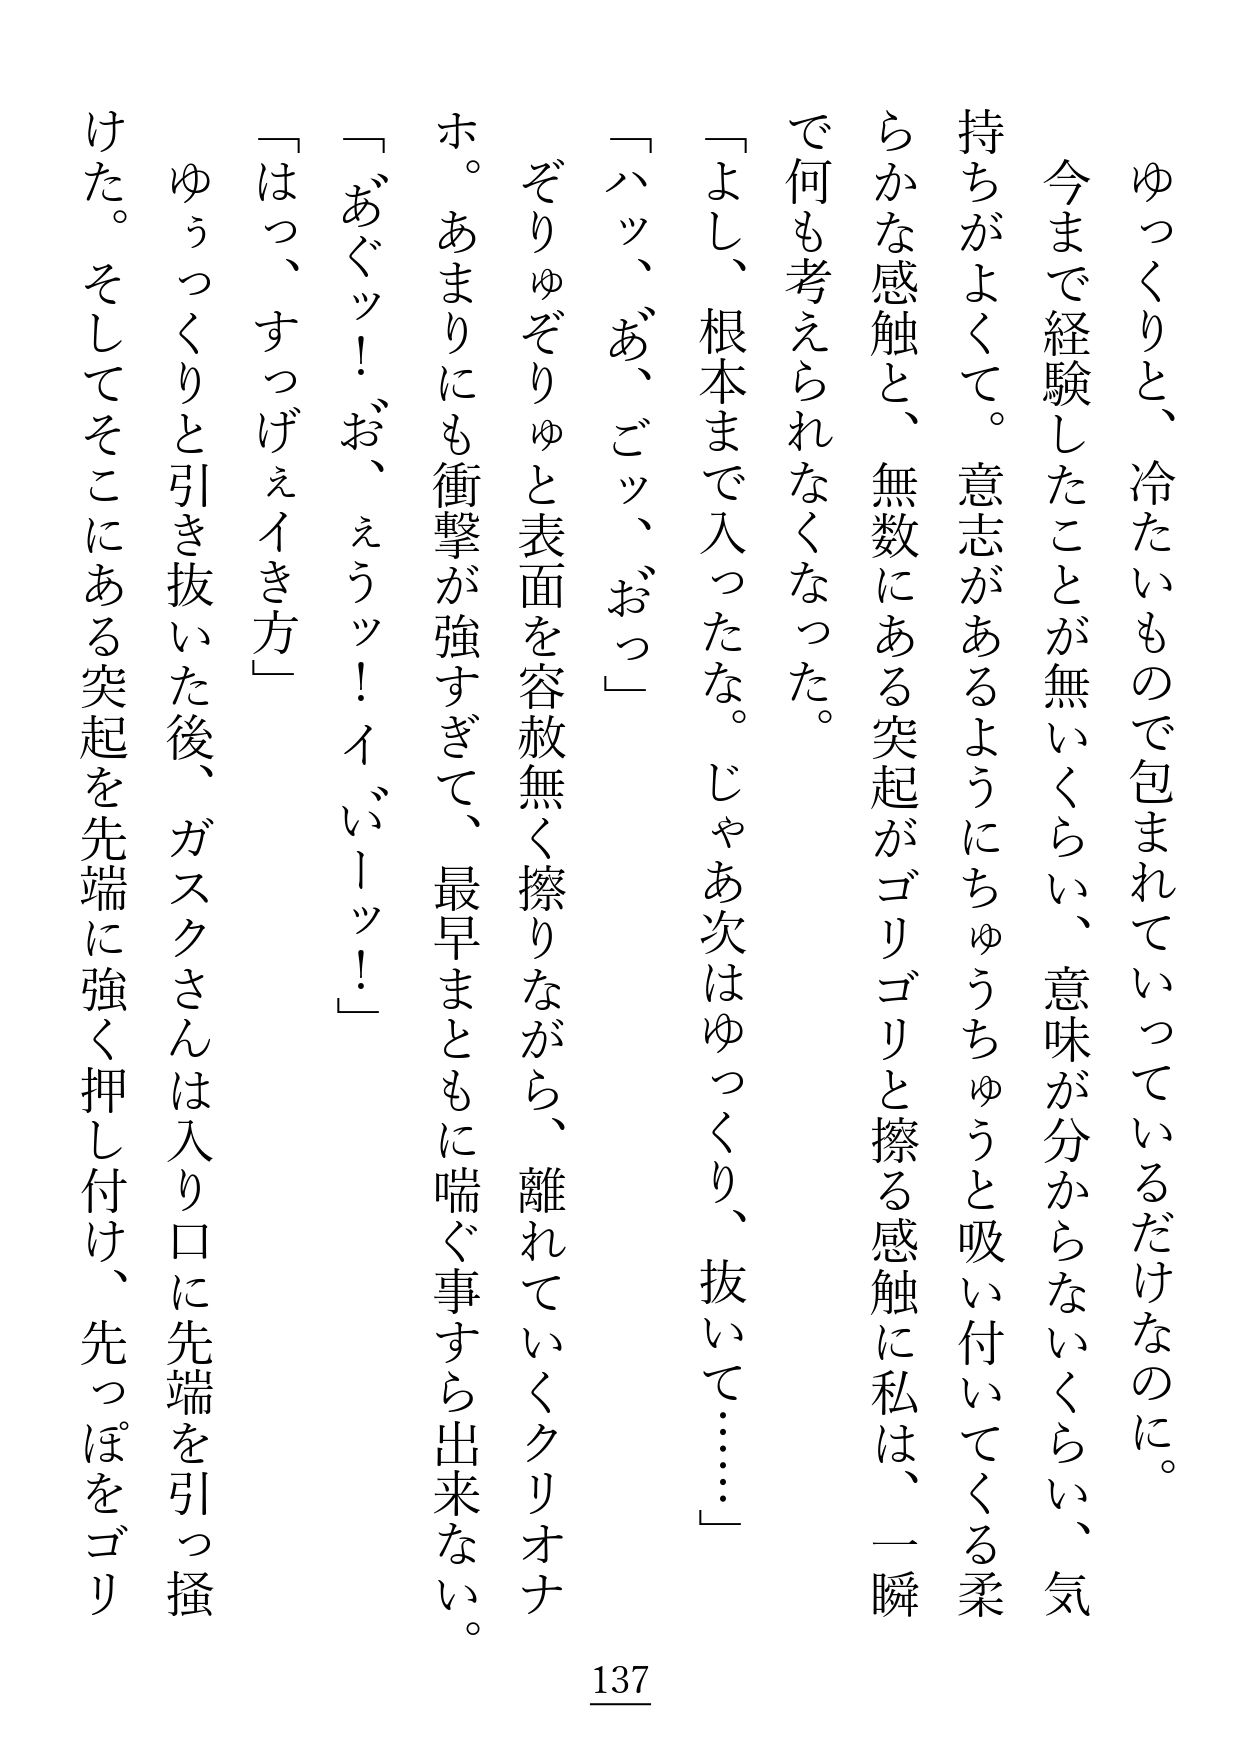 ゆっくりと、冷たいもので包まれていっているだけなのに。
今まで経験したことが無いくらい、意味が分からないくらい、気
持ちがよくて。意志があるようにちゅうちゅうと吸い付いてくる柔
らかな感触と、無数にある突起がゴリゴリと擦る感触に私は、一瞬
で何も考えられなくなった。
「よし、根本まで入ったな。じゃあ次はゆっくり、抜いて……」
「ハッ、あ゙、ごッ、お゙っ」
ぞりゅぞりゅと表面を容赦無く擦りながら、離れていくクリオナ
ホ。あまりにも衝撃が強すぎて、最早まともに喘ぐ事すら出来ない。
「あ゙ぐッ！お゙、ぇうッ！イい゙ーッ！」
「はっ、すっげぇイき方」
ゆぅっくりと引き抜いた後、ガスクさんは入り口に先端を引っ掻
けた。そしてそこにある突起を先端に強く押し付け、先っぽをゴリ
137